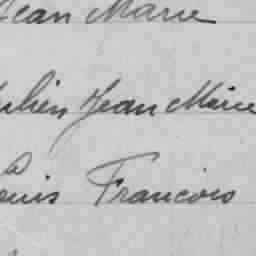 Jean Marie
Julien Jean Marie
Louis Francois